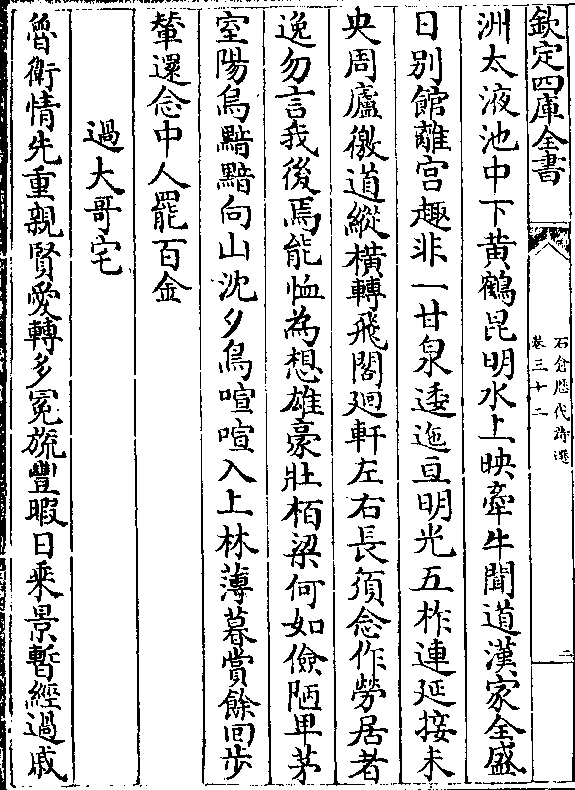 欽定四庫全書
石倉歷代詩選
卷三十二
二
洲太液池中下黄鶴昆明水上映牽牛聞道漢家全盛
日别館離宫趣非一甘泉逶迤亘明光五柞連延接未
央周廬徼道縱横轉飛閣廻軒左右長須念作勞居者
逸勿言我後焉能恤為想雄豪壯栢梁何如儉陋卑茅
室陽烏黯黯向山沈夕鳥喧喧入上林薄暮賞餘回步
輦還念中人罷百金
過大哥宅
魯衛情先重親賢愛轉多冕旒豐暇日乘景暫經過戚